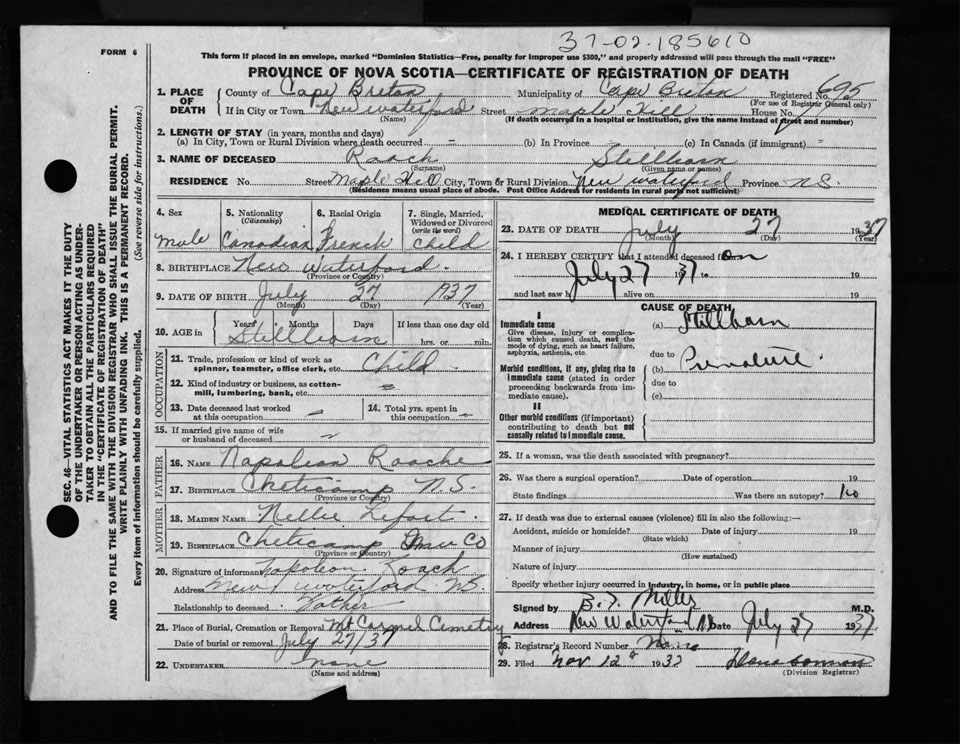 37-02-185610
FORM 6
This form if placed in an envelope, marked "Dominion Statistics—Free, penalty for improper use $300," and properly addressed will pass through the mail "FREE"
PROVINCE OF NOVA SCOTIA—CERTIFICATE OF REGISTRATION OF DEATH
SEC. 46—VITAL STATISTICS ACT MAKES IT THE DUTY
OF THE UNDERTAKER OR PERSON ACTING AS UNDER-
TAKER TO OBTAIN ALL THE PARTICULARS REQUIRED
IN THE "CERTIFICATE OF REGISTRATION OF DEATH"
AND TO FILE THE SAME WITH THE DIVISION REGISTRAR WHO SHALL ISSUE THE BURIAL PERMIT.
WRITE PLAINLY WITH UNFADING INK. THIS IS A PERMANENT RECORD.
Every item of information should be carefully supplied. (See reverse side for instructions.)
1. PLACE OF DEATH County of Cape Breton Municipality of Cape Breton Registered No. 695
(For use of Registrar General only)
If in City or Town New Waterford Street Maple Hill House No.
(Name) (If death occurred in a hospital or institution, give the name instead of street and number)
2. LENGTH OF STAY (in years, months and days)
(a) In City, Town or Rural Division where death occurred - (b) In Province (c) In Canada (if immigrant) -
3. NAME OF DECEASED Roach Stillborn
(Surname) (Given name or names)
RESIDENCE No. Street Maple Hill City, Town or Rural Division New Waterford Province N.S.
(Residence means usual place of abode. Post Office Address for residents in rural parts not sufficient)
4. Sex 5. Nationality (Citizenship) 6. Racial Origin 7. Single, Married, Widowed or Divorced (write the word)
Male Canadian French child
8. BIRTHPLACE New Waterford.
(Province or Country)
9. DATE OF BIRTH July 27 1937
(Month) (Day) (Year)
10. AGE in Years Months Days If less than one day old
Stillborn hrs. or min.
OCCUPATION
11. Trade, profession or kind of work as spinner, teamster, office clerk, etc. Child
12. Kind of industry or business, as cotton-mill, lumbering, bank, etc.
13. Date deceased last worked at this occupation - 14. Total yrs. spent in this occupation -
15. If married give name of wife or husband of deceased
FATHER
16. NAME Napolean Roache
17. BIRTHPLACE Cheticamp N.S.
(Province or Country)
MOTHER
18. MAIDEN NAME Nellie Lefort.
19. BIRTHPLACE Cheticamp Inv Co
(Province or Country)
20. Signature of informant Napoleon Roach
Address New Waterford N.S.
Relationship to deceased Father
21. Place of Burial, Cremation or Removal Mt Carmel Cemetry
Date of burial or removal July 27/37
22. UNDERTAKER None
(Name and address)
MEDICAL CERTIFICATE OF DEATH
23. DATE OF DEATH July 27 1937
(Month) (Day) (Year)
24. I HEREBY CERTIFY that I attended deceased from on
July 27 1937 to 19
and last saw h alive on 19
CAUSE OF DEATH
I
Immediate cause
Give disease, injury or complication which caused death, not the mode of dying, such as heart failure, asphyxia, asthenia, etc.
(a) Stillborn
due to
Morbid conditions, if any, giving rise to immediate cause (stated in order proceeding backwards from immediate cause).
(b) Premature.
due to
(c)
II
Other morbid conditions (if important) contributing to death but not causally related to immediate cause.
25. If a woman, was the death associated with pregnancy?
26. Was there a surgical operation? Date of operation 19
State findings Was there an autopsy? No
27. If death was due to external causes (violence) fill in also the following:—
Accident, suicide or homicide? Date of injury 19
(State which)
Manner of injury
(How sustained)
Nature of injury
Specify whether injury occurred in industry, in home, or in public place
Signed by B. J. Miller M.D.
Address New Waterford NS Date July 27 1937.
28. Registrar's Record Number
29. Filed Nov 12th 1937
(Division Registrar)